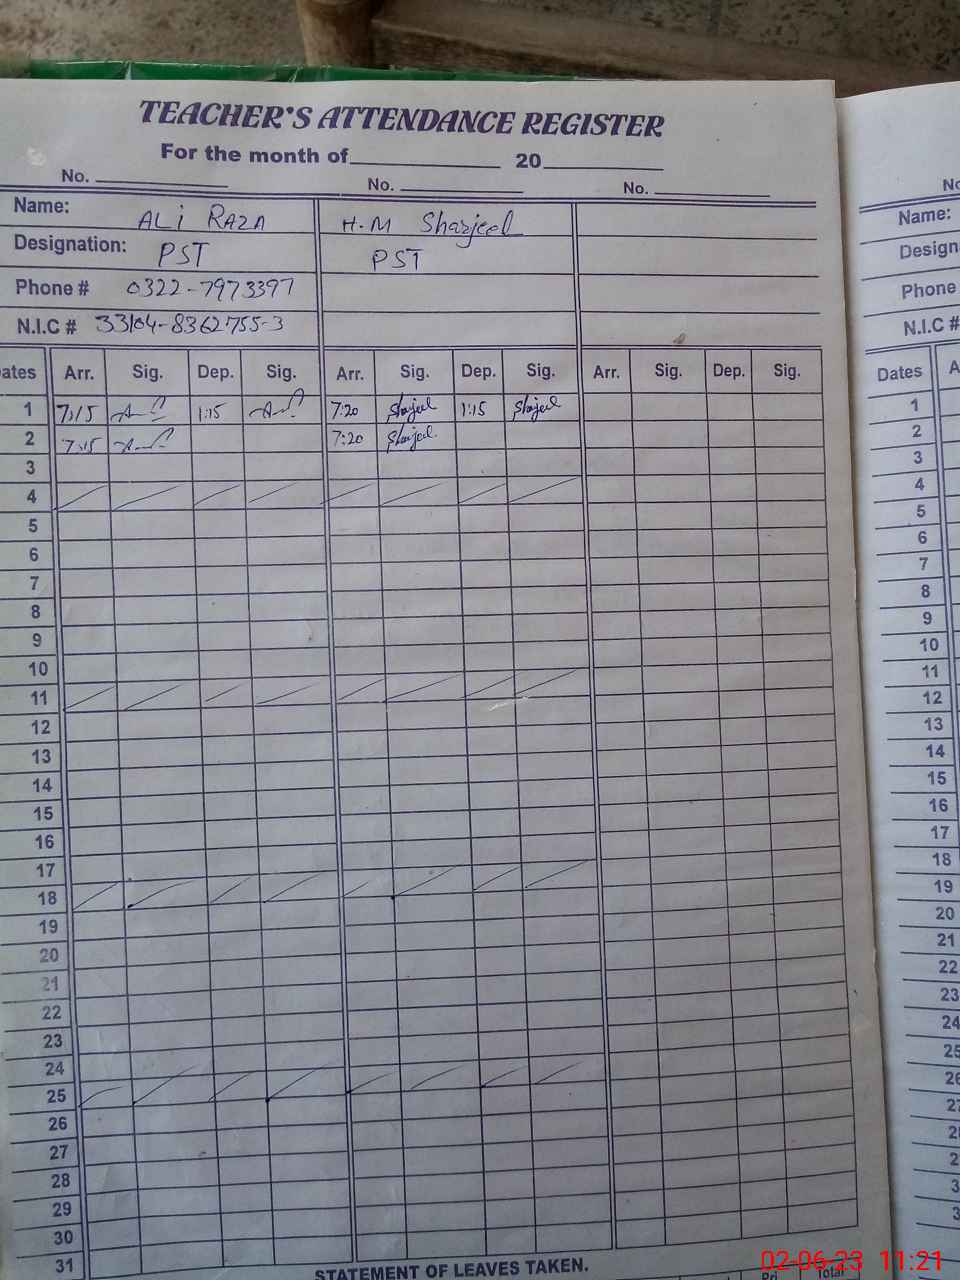 TEACHER'S ATTENDANCE REGISTER
For the month of 20
No. No. No.
Name: ALI RAZA H.M Sharjeel
Designation: PST PST
Phone # 0322-7973397
N.I.C # 33104-8362755-3
Dates Arr. Sig. Dep. Sig. Arr. Sig. Dep. Sig. Arr. Sig. Dep. Sig.
1 7:15 1:15 7:20 Sharjeel 1:15 Sharjeel
2 7:15 7:20 Sharjeel
3
4
5
6
7
8
9
10
11
12
13
14
15
16
17
18
19
20
21
22
23
24
25
26
27
28
29
30
31
STATEMENT OF LEAVES TAKEN.
Total
No
Name:
Design
Phone
N.I.C #
Dates A
1
2
3
4
5
6
7
8
9
10
11
12
13
14
15
16
17
18
19
20
21
22
23
24
25
26
27
2
2
3
3
02-06-23 11:21